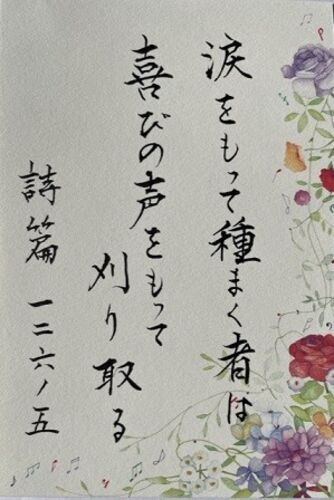 涙をもって種まく者は
喜びの声をもって
刈り取る
詩篇 一二六ノ五